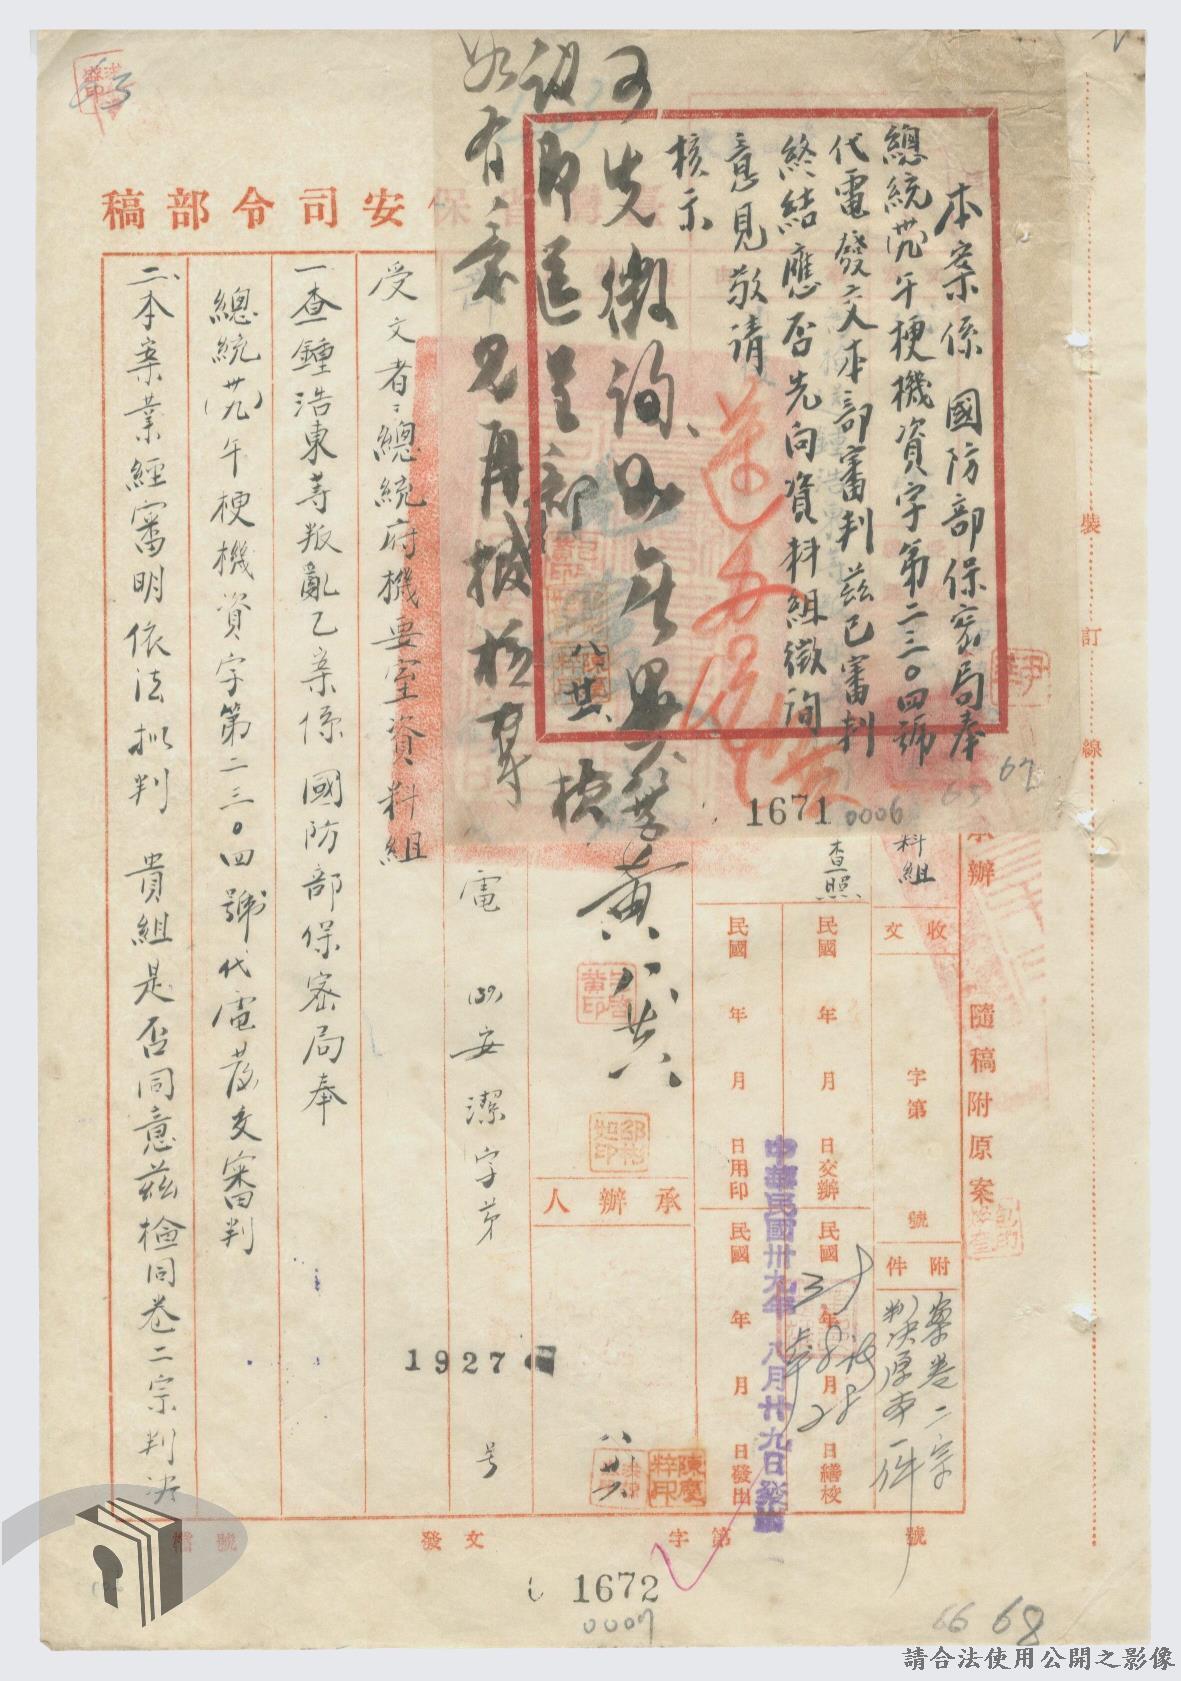 本案係　國防部保密局奉
總統(卅九)午梗機資字第二三○四號
代電發交本部審判茲已審判
終結應否先向資料組徵詢
意見敬請
核示
可先徵詢、如無異議
即送呈部核
如有意見再擬核奪
八.其
1671
0006
67
65
保安司令部稿
承辦 隨稿附原案
裝
訂
線
料組
查照
收文
字第
號
附件
案卷二宗
判決原本一件
民國 年 月 日交辦
民國 年 月 日繕校
民國 年 月 日用印
民國 年 月 日發出
中華民國卅九年八月廿九日發出
承辦人
陳慶粹印
電 (39)安潔字第 1927 号
受文者：總統府機要室資料組
一、查鍾浩東等叛亂乙案係　國防部保密局奉
總統(卅九)午梗機資字第二三○四號代電發交審判
二、本案業經審明依法拟判　貴組是否同意茲檢同卷二宗判決
檔號
發文
字第
號
1672
0007
66 68
請合法使用公開之影像